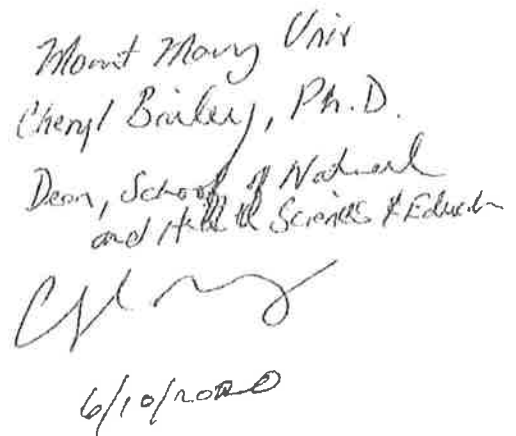 Mount Mary Univ
Cheryl Bailey, Ph.D.
Dean, School of Natural
and Health Sciences & Education
6/10/2020